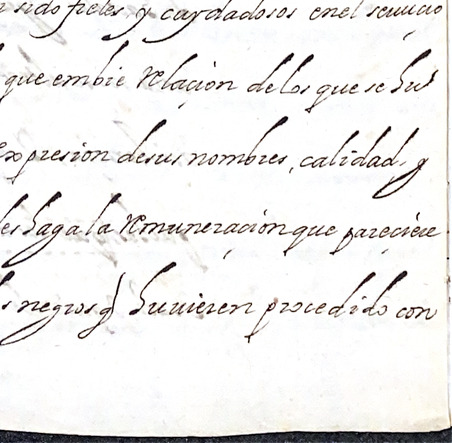 sido fieles y cuydadosos enel seruicio
que embie relaçion delos que se hu
expresion desus nombres, calidad, y
les haga la remuneraçion que pareçiere
s negros q huuieren procedido con